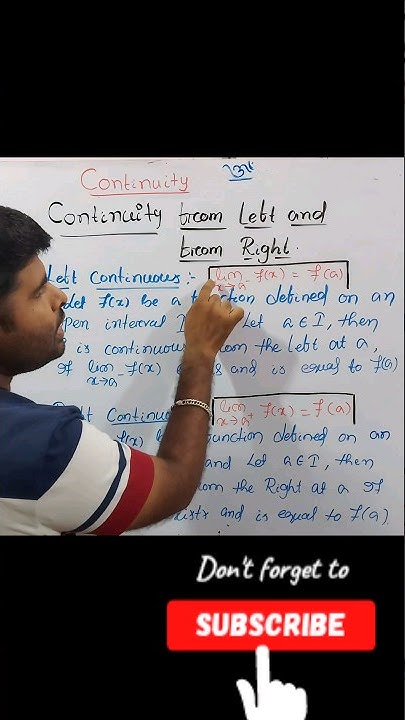 Continuity
Continuity from Left and
from Right.
Left Continuous :- lim x→a- f(x) = f(a)
Let f(x) be a function defined on an
open interval I Let a ∈ I, then
is continuous from the left at a,
If lim x→a- f(x) and is equal to f(a)
Continuous lim x→a+ f(x) = f(a)
f(x) function defined on an
and Let a ∈ I, then
from the Right at a If
exists and is equal to f(a)
Don't forget to
SUBSCRIBE